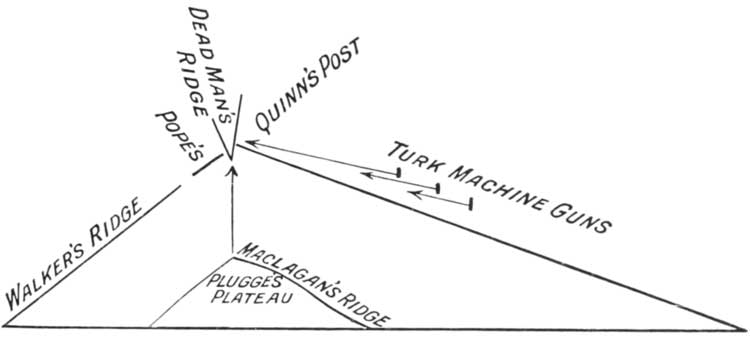 DEAD MAN'S
RIDGE
QUINN'S POST
POPE'S
TURK MACHINE GUNS
WALKER'S RIDGE
MACLAGAN'S RIDGE
PLUGGE'S
PLATEAU